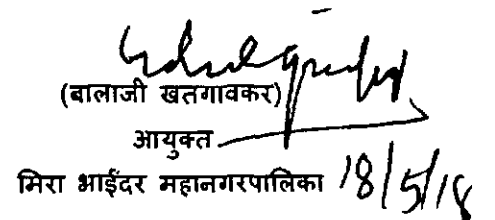 (बालाजी खतगावकर)
आयुक्त
मिरा भाईंदर महानगरपालिका 18/5/18